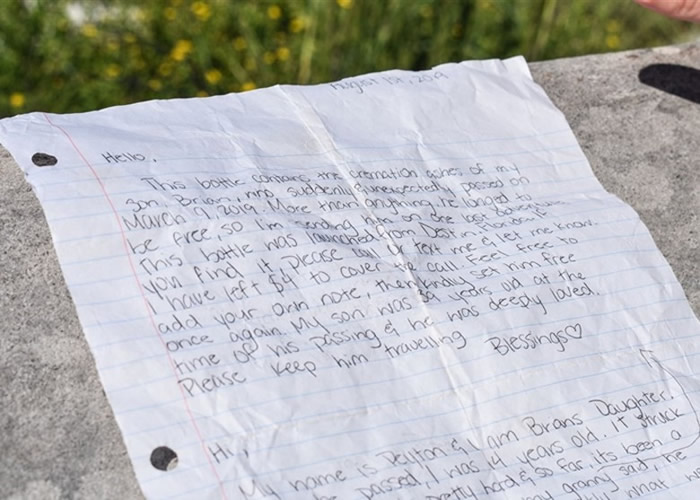 August 1st, 2019
Hello,
This bottle contains the cremation ashes of my
son, Brian, who suddenly & unexpectedly passed on
March 9, 2019. More than anything, he longed to
be free, so I'm sending him on one last adventure.
This bottle was launched from Destin Florida. If
you find it please call or text me & let me know.
I have left $4 to cover the call. Feel free to
add your own note, then kindly set him free
once again. My son was 39 years old at the
time of his passing & he was deeply loved.
Please keep him travelling
Blessings♡
Hi,
My name is Peyton & I am Brians Daughter.
he passed, I was 14 years old. It struck
pretty hard & so far, its been a
granny said, he
what